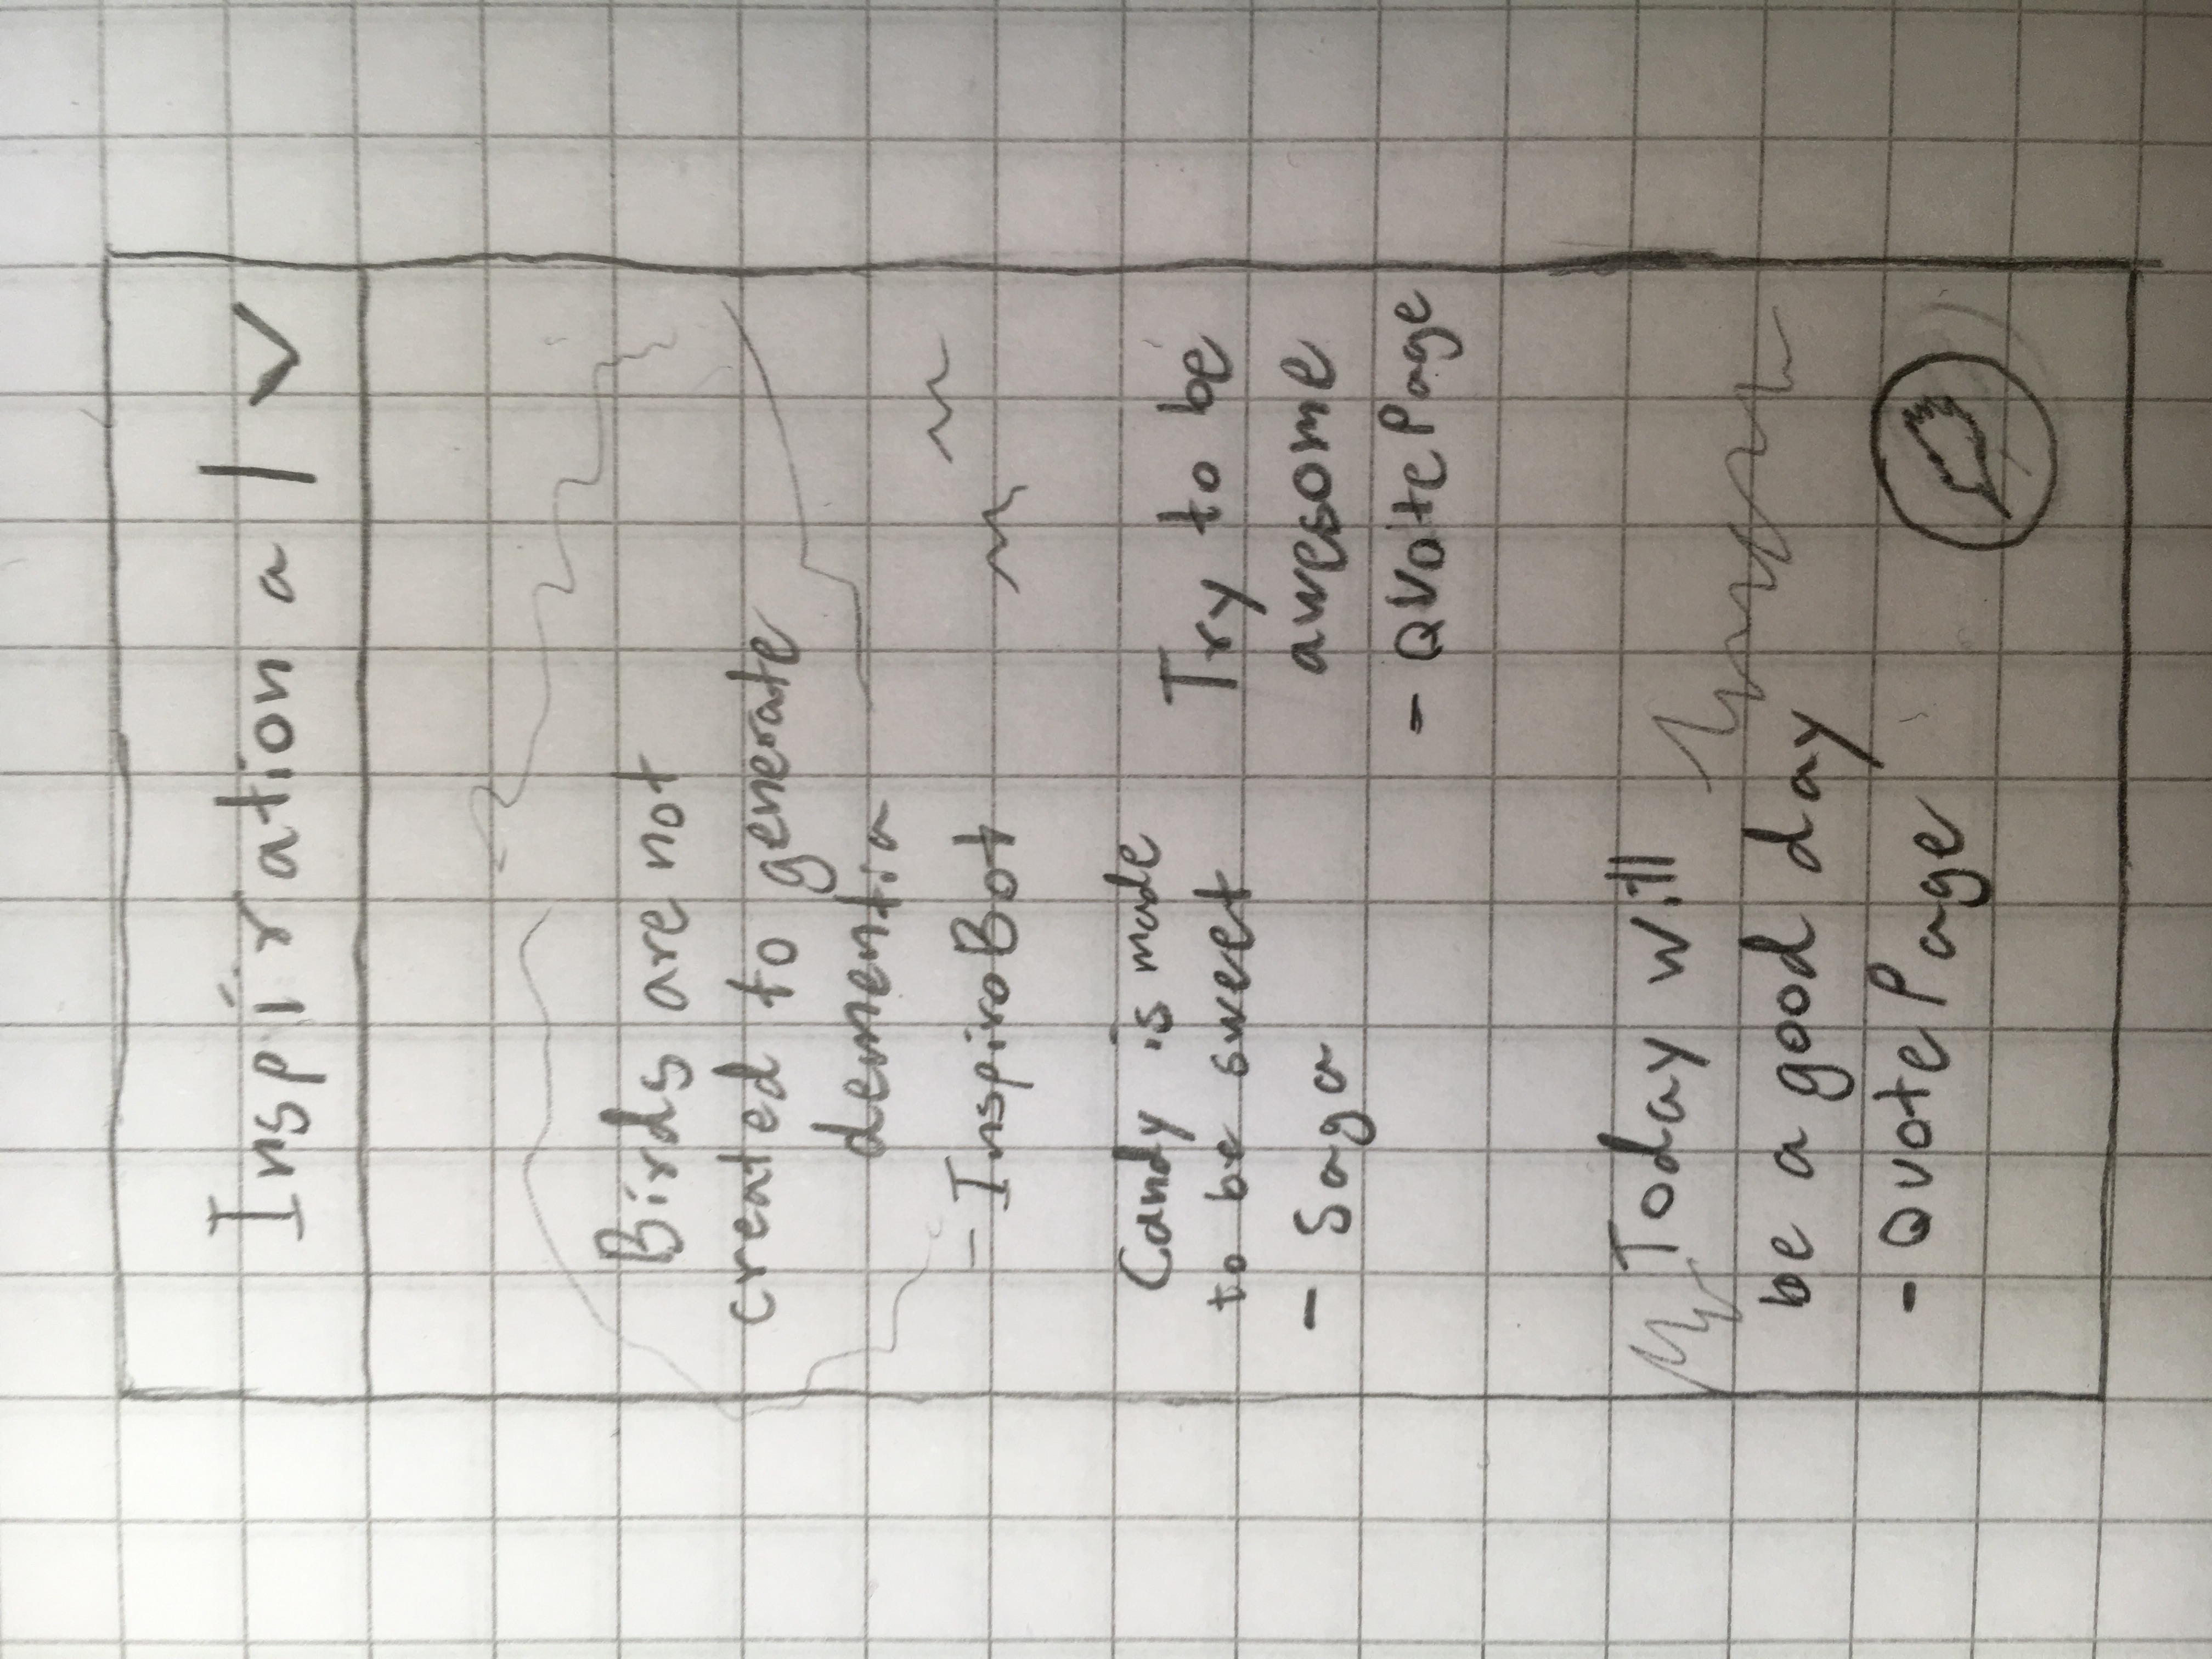 Inspirational
Birds are not
created to generate
dementia
- InspiroBot
Candy is made
to be sweet
- Saga
Try to be
awesome
- QuotePage
Today will
be a good day
- QuotePage